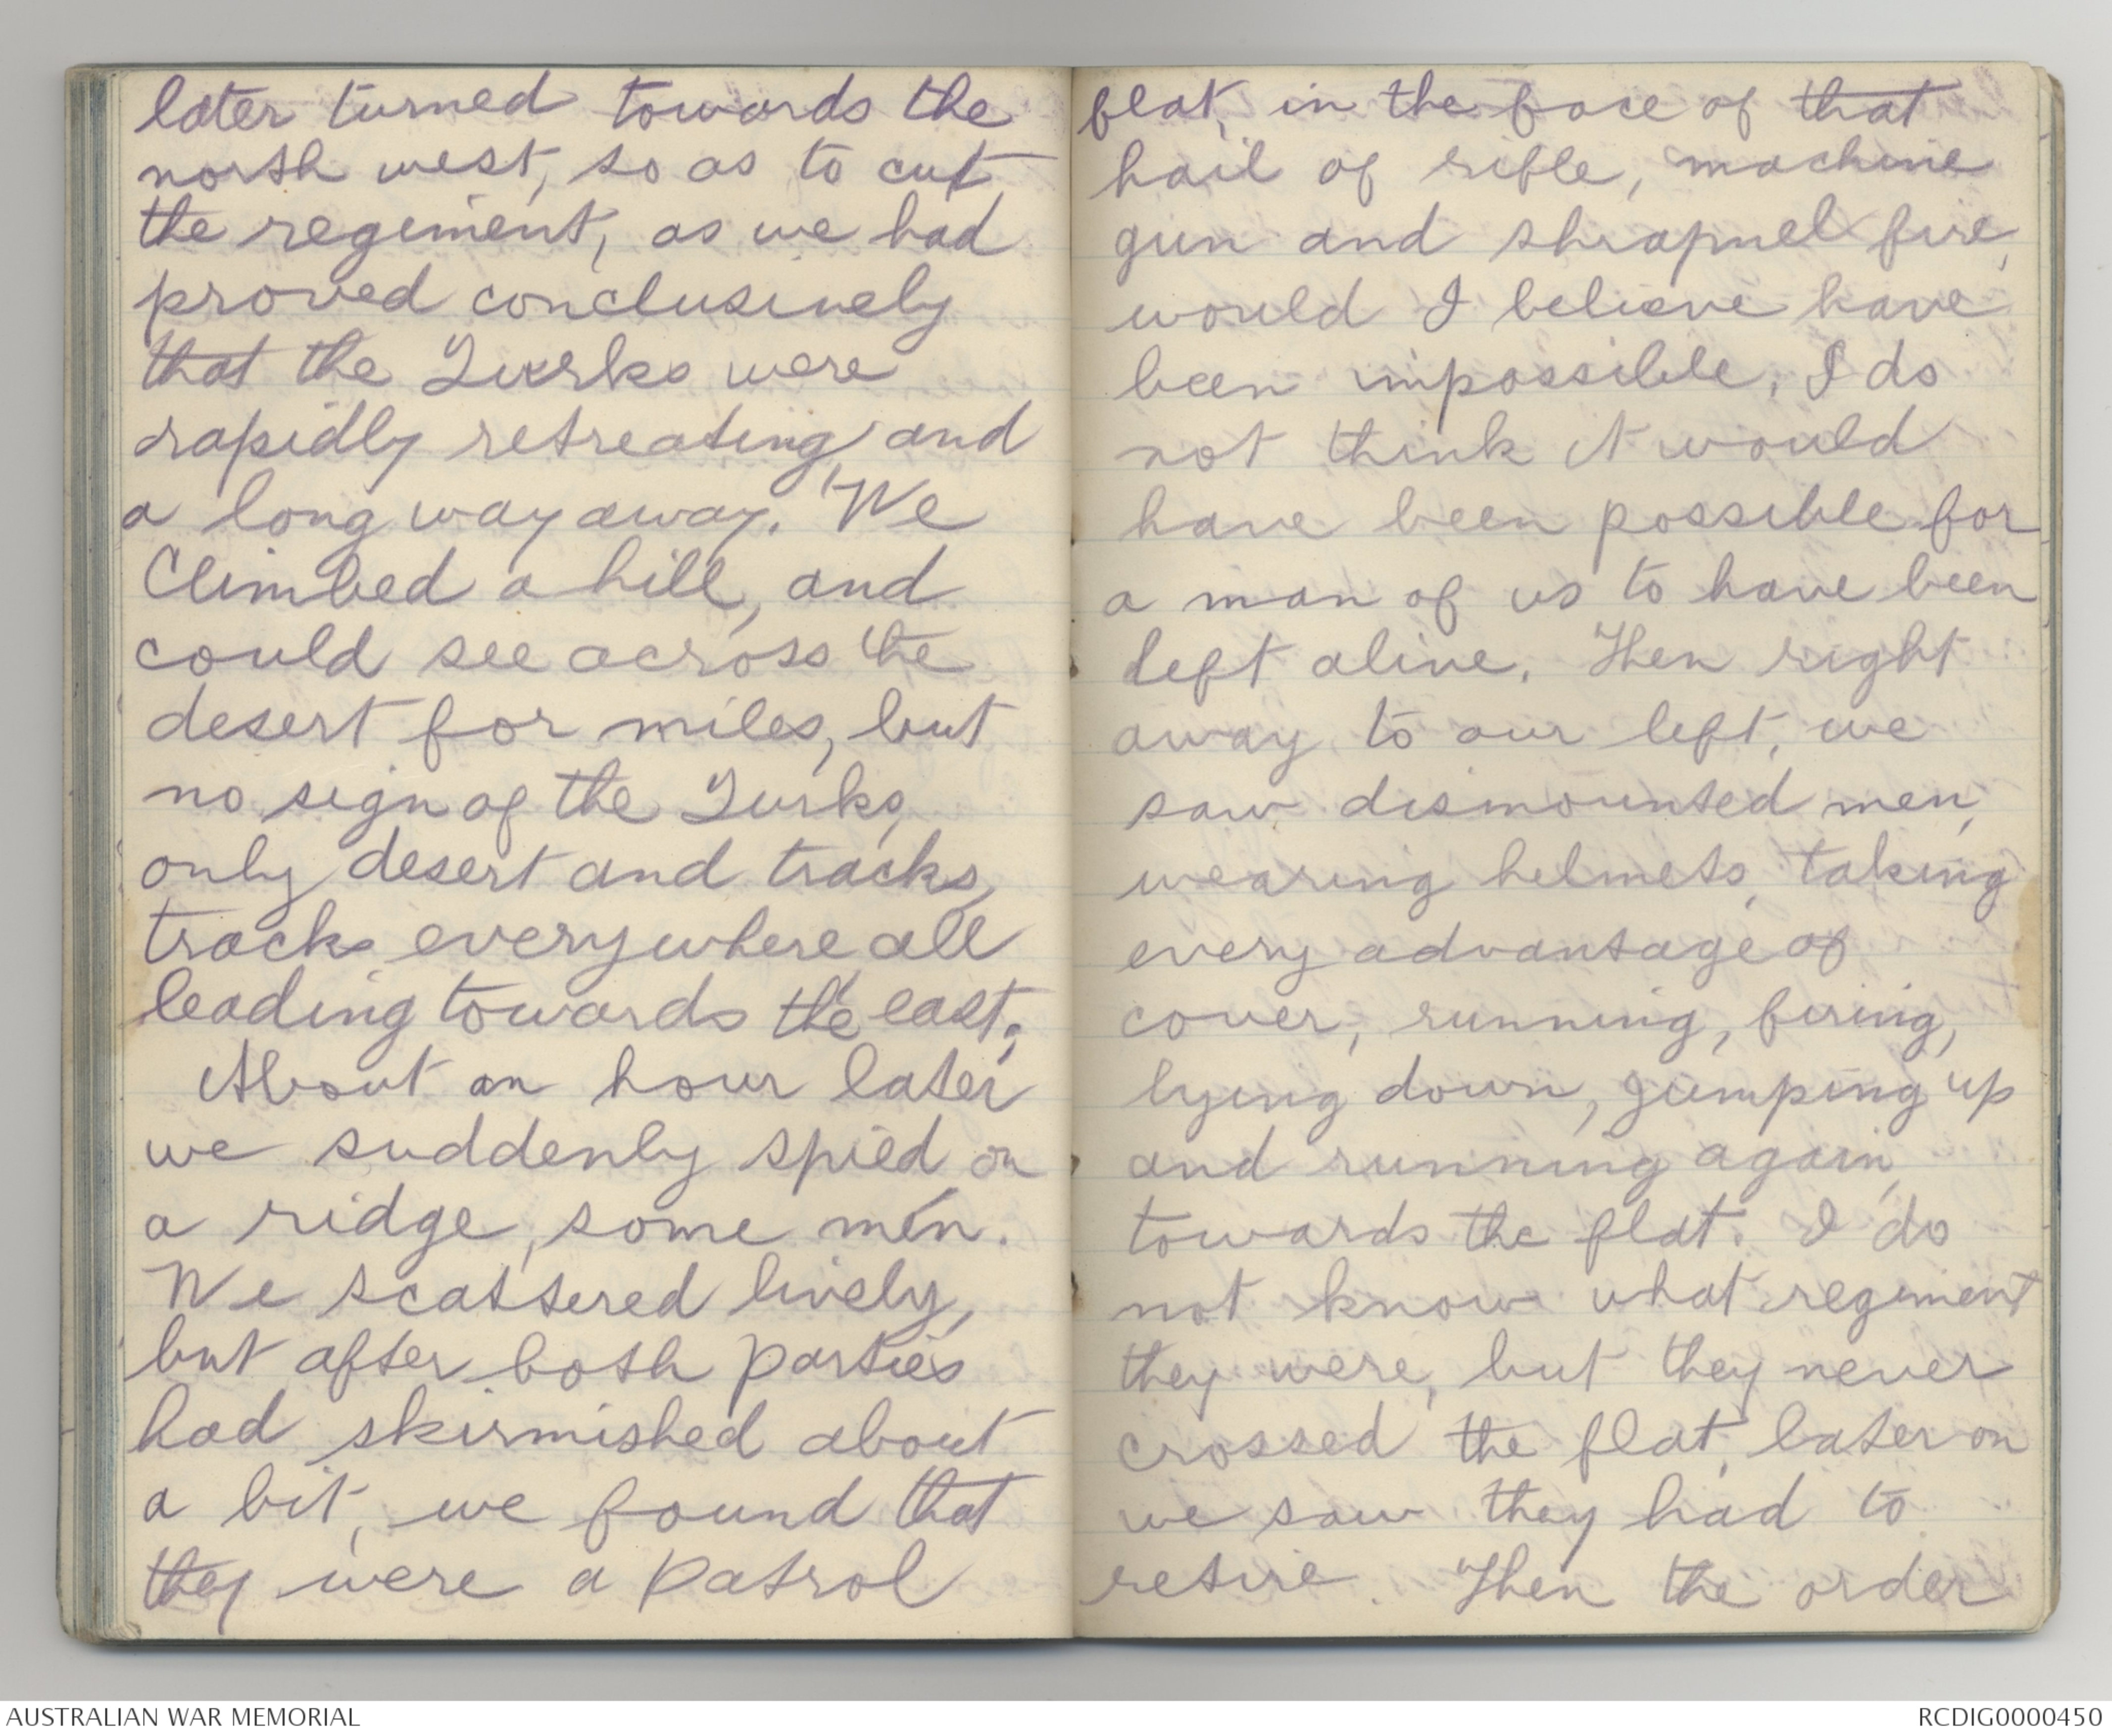 later turned towards the
north west, so as to cut
the regiment, as we had
proved conclusively
that the Turks were
rapidly retreating, and
a long way away. We
Climbed a hill, and
could see across the
desert for miles, but
no sign of the Turks,
only desert and tracks,
tracks everywhere all
leading towards the east.
About an hour later
we suddenly spied on
a ridge, some men.
We scattered lively,
but after both parties
had skirmished about
a bit, we found that
they were a patrol
flat, in the face of that
hail of rifle, machine
gun and shrapnel fire,
would I believe have
been impossible. I do
not think it would
have been possible for
a man of us to have been
left alive. Then right
away to our left, we
saw dismounted men,
wearing helmets, taking
every advantage of
cover, running, firing,
lying down, jumping up
and running again,
towards the flat. I do
not know what regiment
they were, but they never
crossed the flat, later on
we saw they had to
retire. Then the order
AUSTRALIAN WAR MEMORIAL
RCDIG0000450